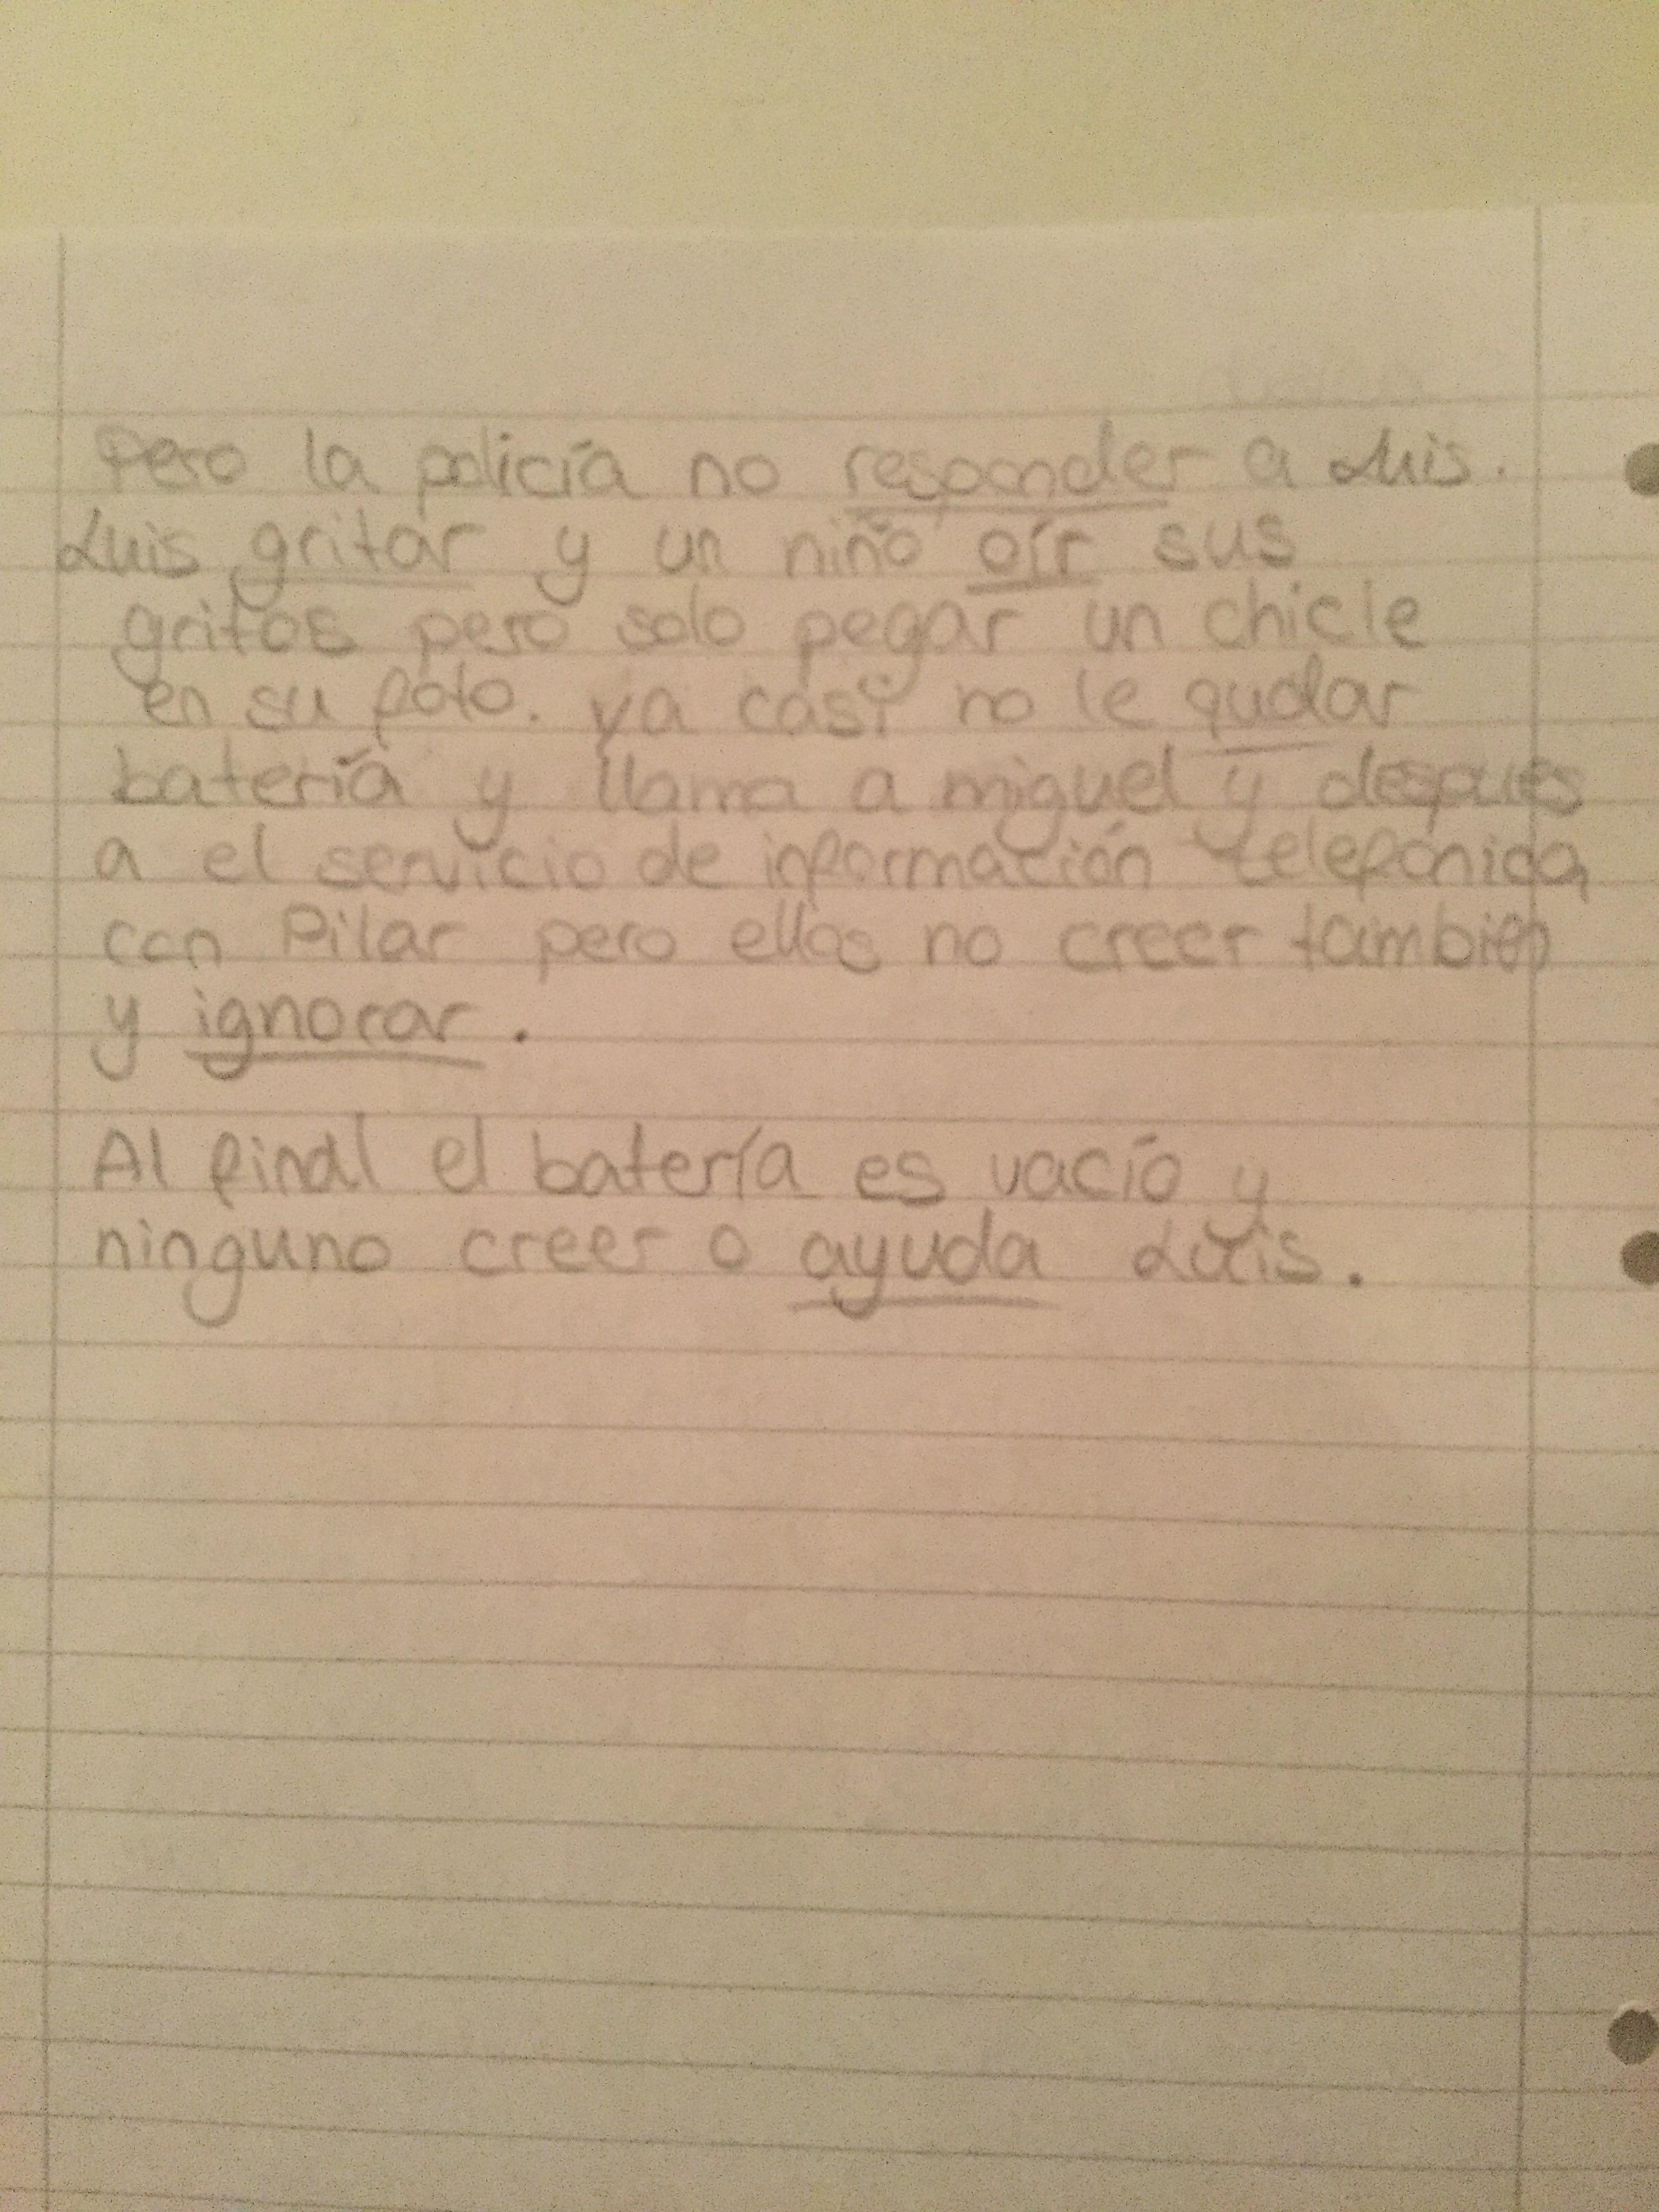 Pero la policía no responder a Luis.
Luis gritar y un niño oír sus
gritos pero solo pegar un chicle
en su foto. ya casi no le qudar
batería y llama a miguel y despues
a el servicio de información telefónica
con Pilar pero ellos no creer tambien
y ignorar.
Al final el batería es vacío y
ninguno creer o ayuda Luis.